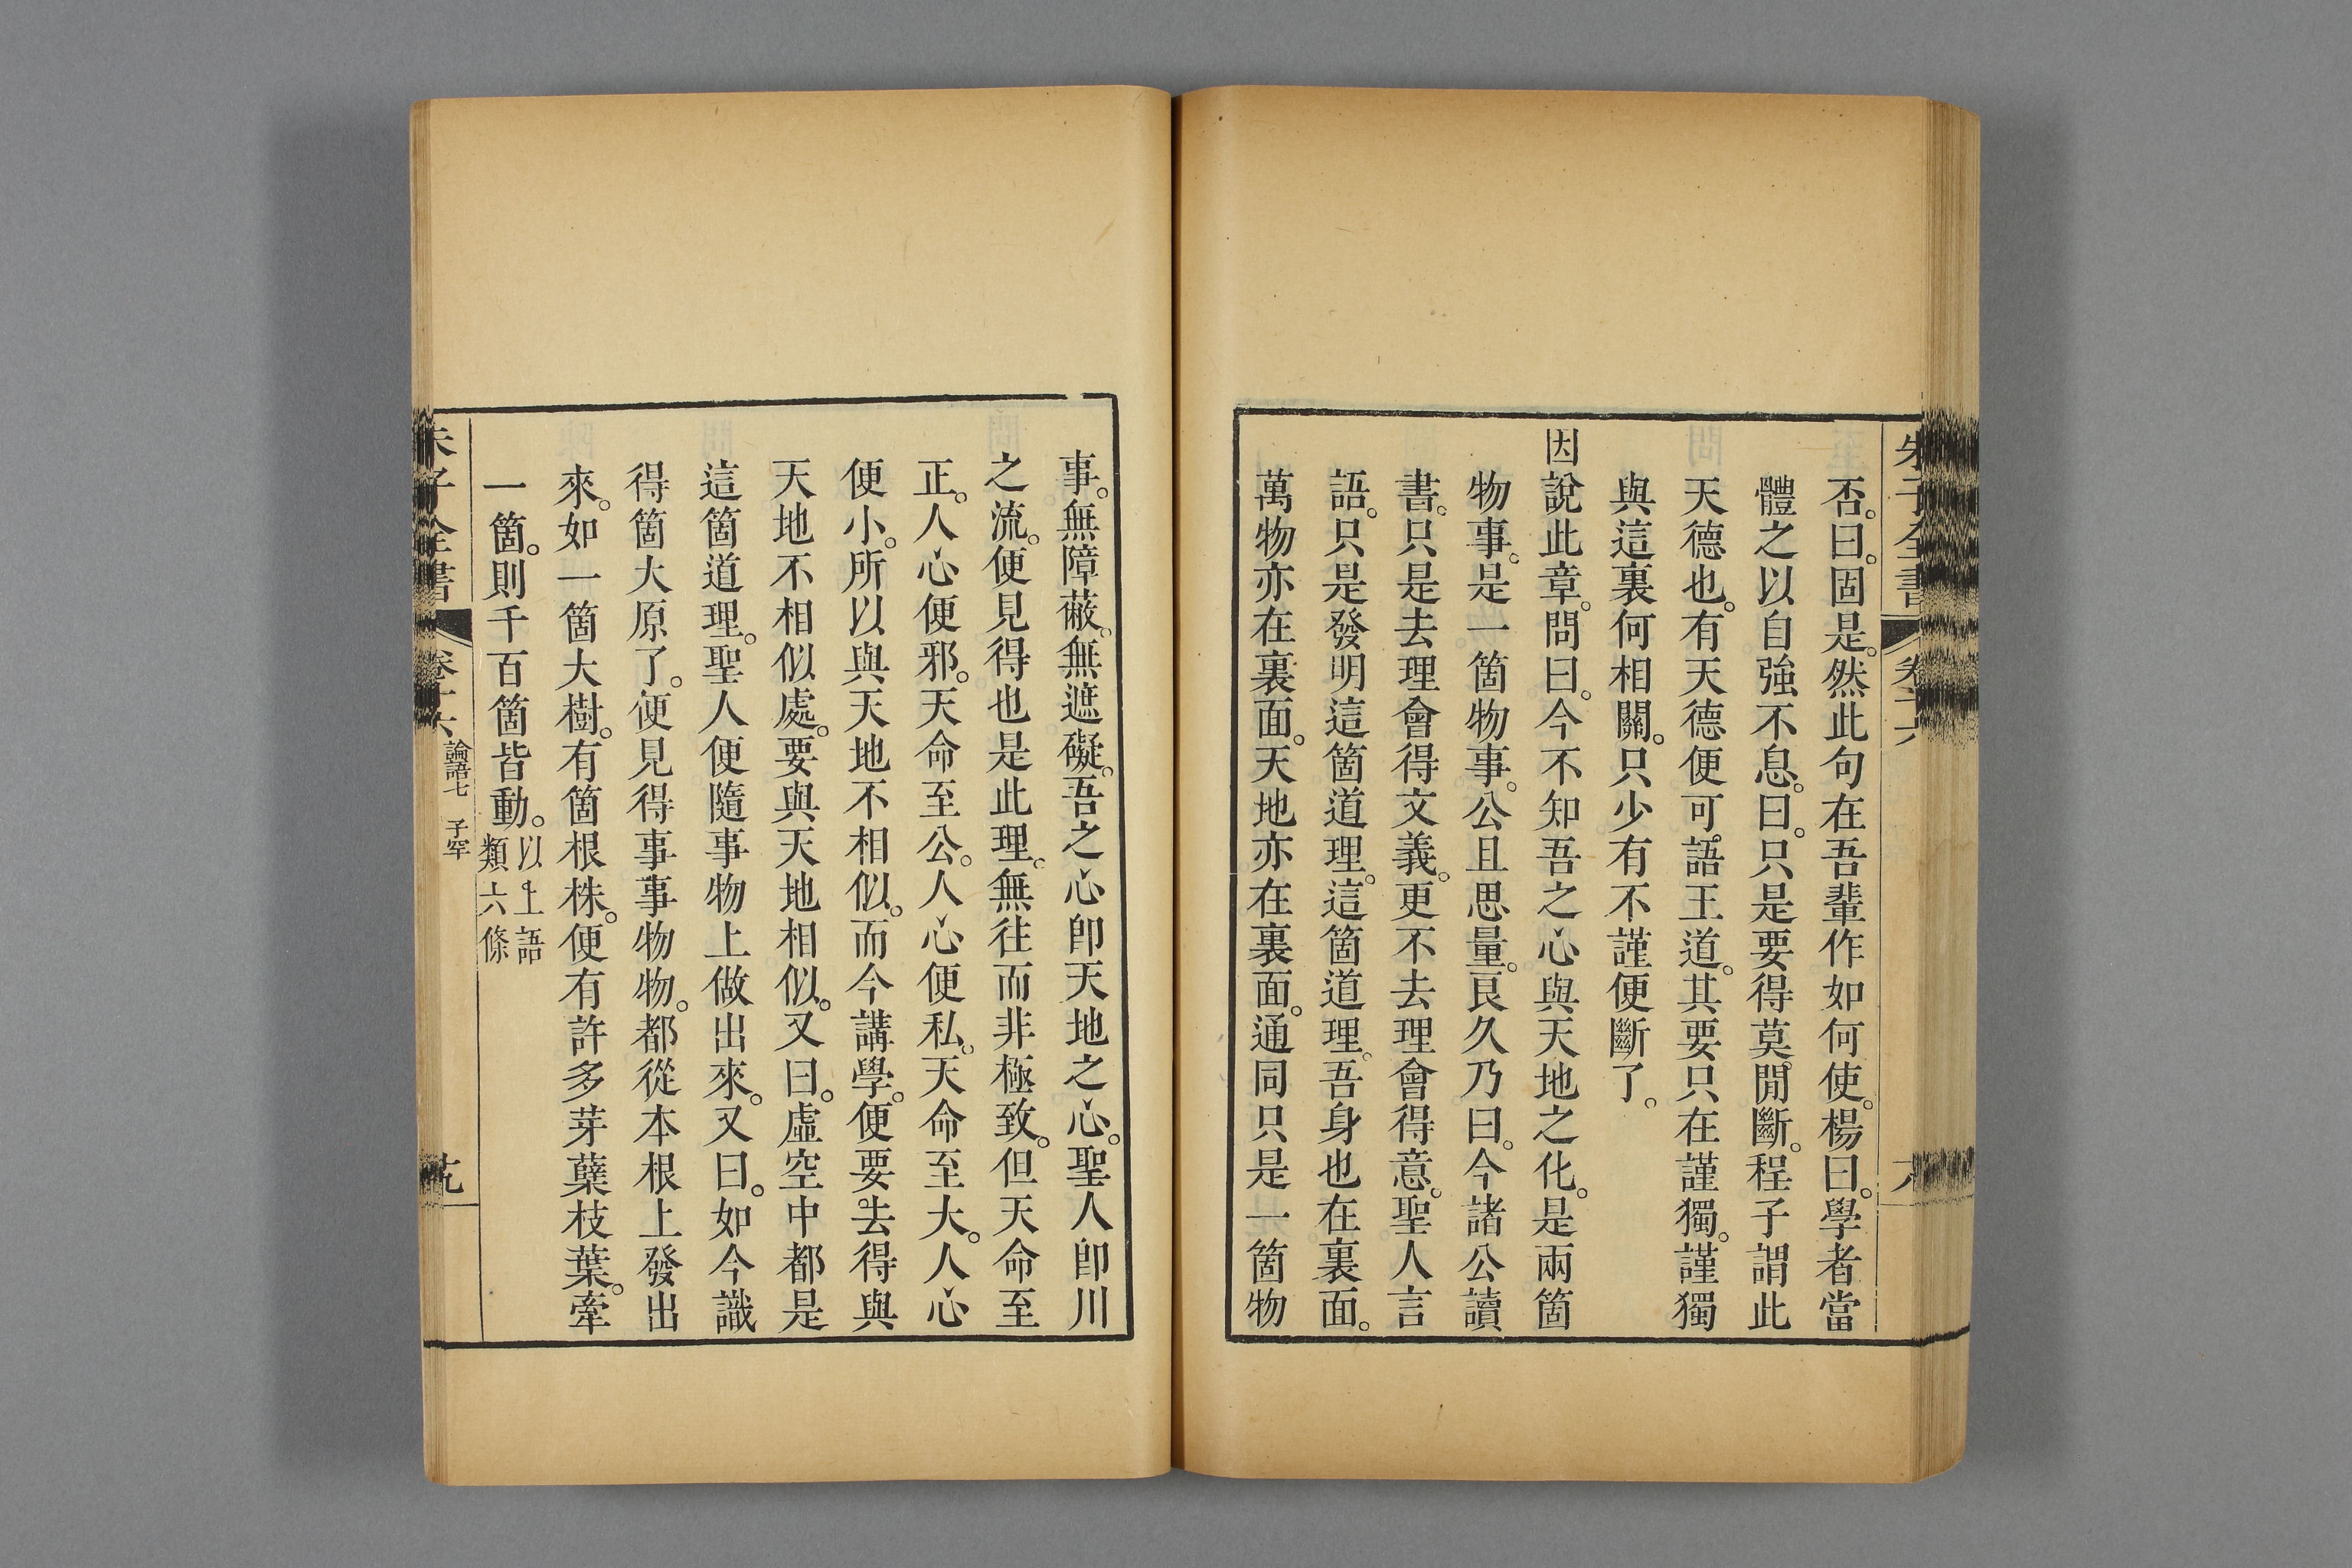 朱子全書 卷十六
否。曰。固是。然此句在吾輩作如何使。楊曰。學者當
體之以自強不息。曰。只是要得莫閒斷。程子謂此
天德也。有天德便可語王道。其要只在謹獨。謹獨
與這裏何相關。只少有不謹便斷了。
因說此章。問曰。今不知吾之心與天地之化。是兩箇
物事。是一箇物事。公且思量。良久乃曰。今諸公讀
書。只是去理會得文義。更不去理會得意。聖人言
語。只是發明這箇道理。這箇道理。吾身也在裏面。
萬物亦在裏面。天地亦在裏面。通同只是一箇物
事。無障蔽。無遮礙。吾之心卽天地之心。聖人卽川
之流。便見得也是此理。無往而非極致。但天命至
正。人心便邪。天命至公。人心便私。天命至大。人心
便小。所以與天地不相似。而今講學。便要去得與
天地不相似處。要與天地相似。又曰。虛空中都是
這箇道理。聖人便隨事物上做出來。又曰。如今識
得箇大原了。便見得事事物物。都從本根上發出
來。如一箇大樹。有箇根株。便有許多芽蘖枝葉。牽
一箇。則千百箇皆動。以上語類六條
朱子全書 卷十六 論語七 子罕